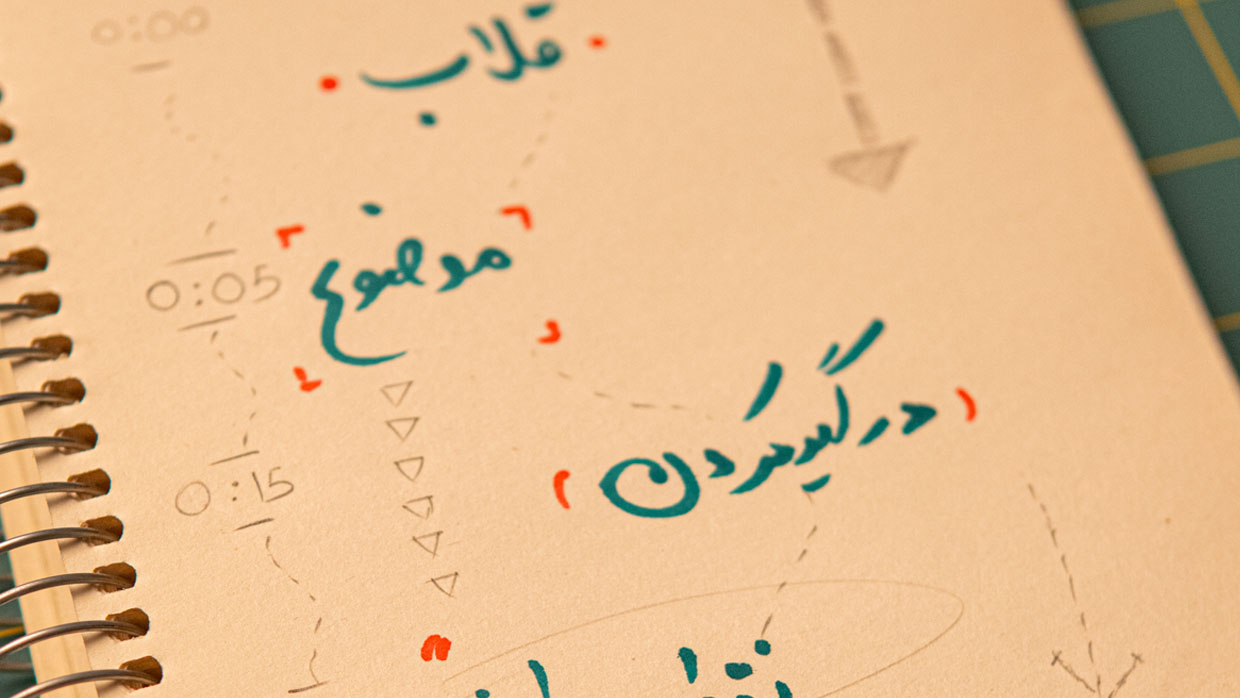 0:00
قلاب
موضوع
0:05
درگیرکردن
0:15